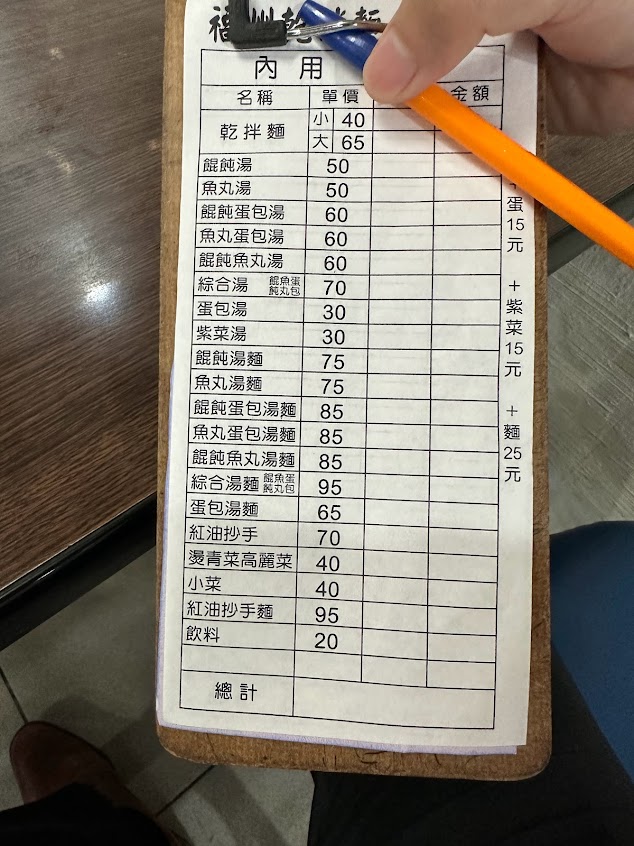 福州乾拌麵
內用
名稱 單價 金額
乾拌麵 小 40
大 65
餛飩湯 50
魚丸湯 50
餛飩蛋包湯 60
魚丸蛋包湯 60
餛飩魚丸湯 60
綜合湯 餛魚蛋飩丸包 70
蛋包湯 30
紫菜湯 30
餛飩湯麵 75
魚丸湯麵 75
餛飩蛋包湯麵 85
魚丸蛋包湯麵 85
餛飩魚丸湯麵 85
綜合湯麵 餛魚蛋飩丸包 95
蛋包湯麵 65
紅油抄手 70
燙青菜高麗菜 40
小菜 40
紅油抄手麵 95
飲料 20
總計
+蛋15元 +紫菜15元 +麵25元